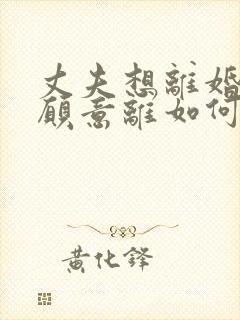 丈夫想離婚
願意離如何
黃化鋒